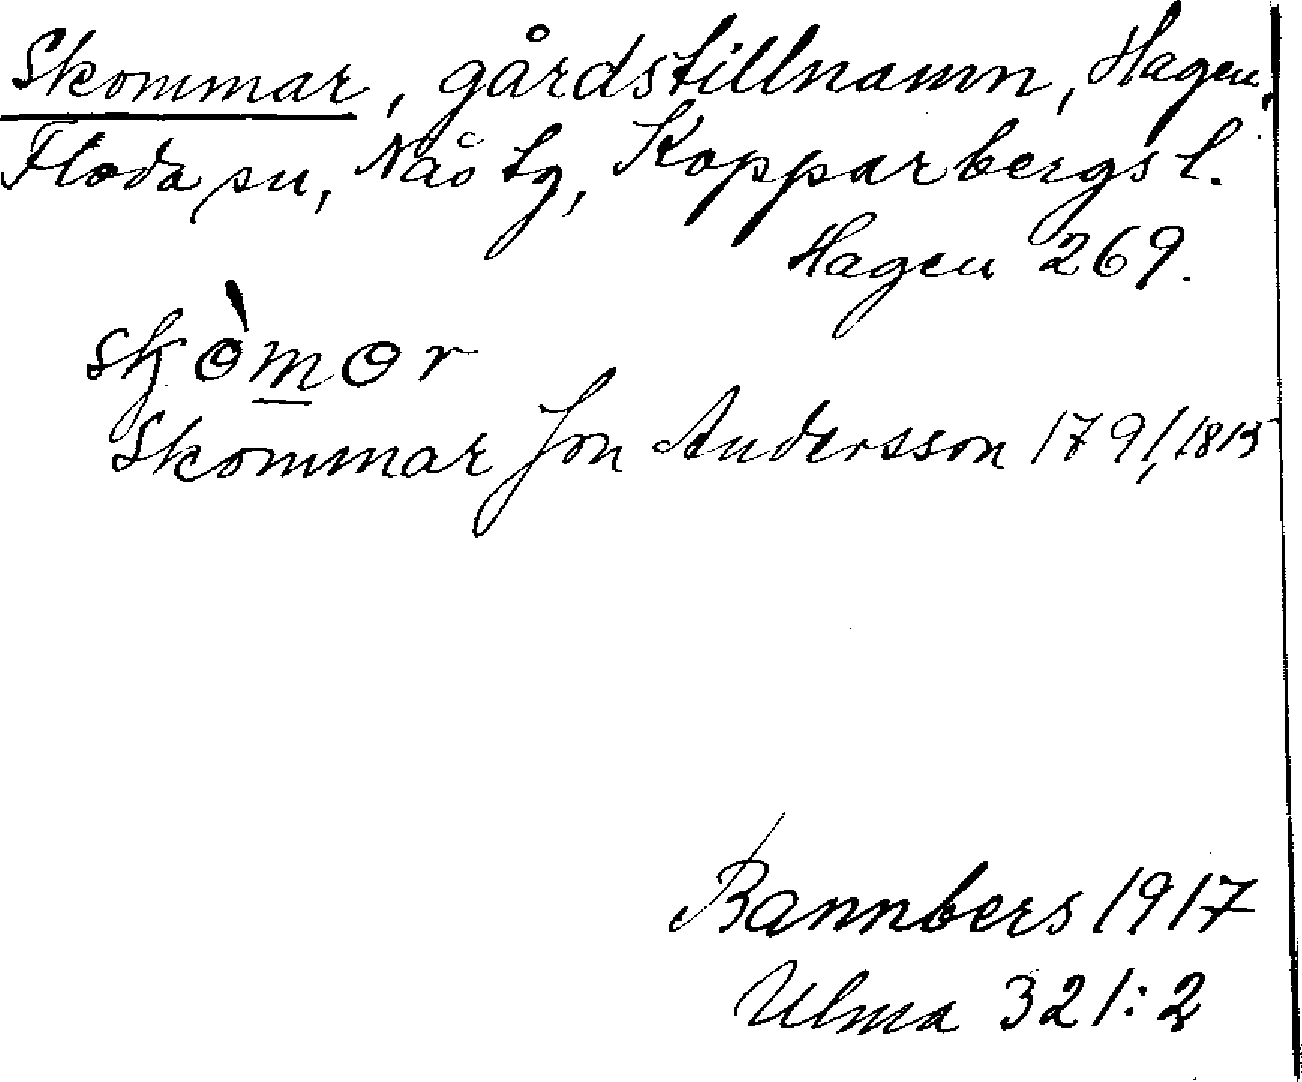 Skommar, gårdstillnamn, Hagen,
Floda sn, Nås tg, Kopparbergs l.
Hagen 269.
skòmor
Skommar Jon Andersson 1791, 1815
Bannbers 1917
Ulma 321:2